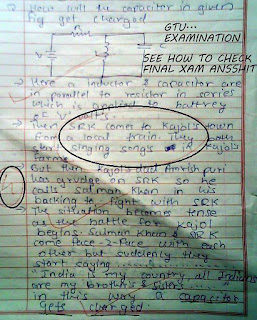 How will the capacitor in given
fig get charged
R
C
V
GTU...
EXAMINATION
SEE HOW TO CHECK
FINAL XAM ANSSHIT
→ Here inductor & capacitor are
in parallel to resistor in series
which is applied to battrey
OF 'V' volts.
→ Then SRK comes to Kajol's town
from a local train. They both
start singing songs in Kajol's
farms.
→ But then Kajol's dad Amrish puri
has grudge on SRK so he
calls Salman Khan in his
backing to fight with SRK
→ The situation becomes tense
as the battle for kajol
begins. Salman khan & SRK
come face-2-face with each
other but suddenly they
start saying
"India is my country, all Indians
are my brother's & sister's
in this way a capacitor
gets charged